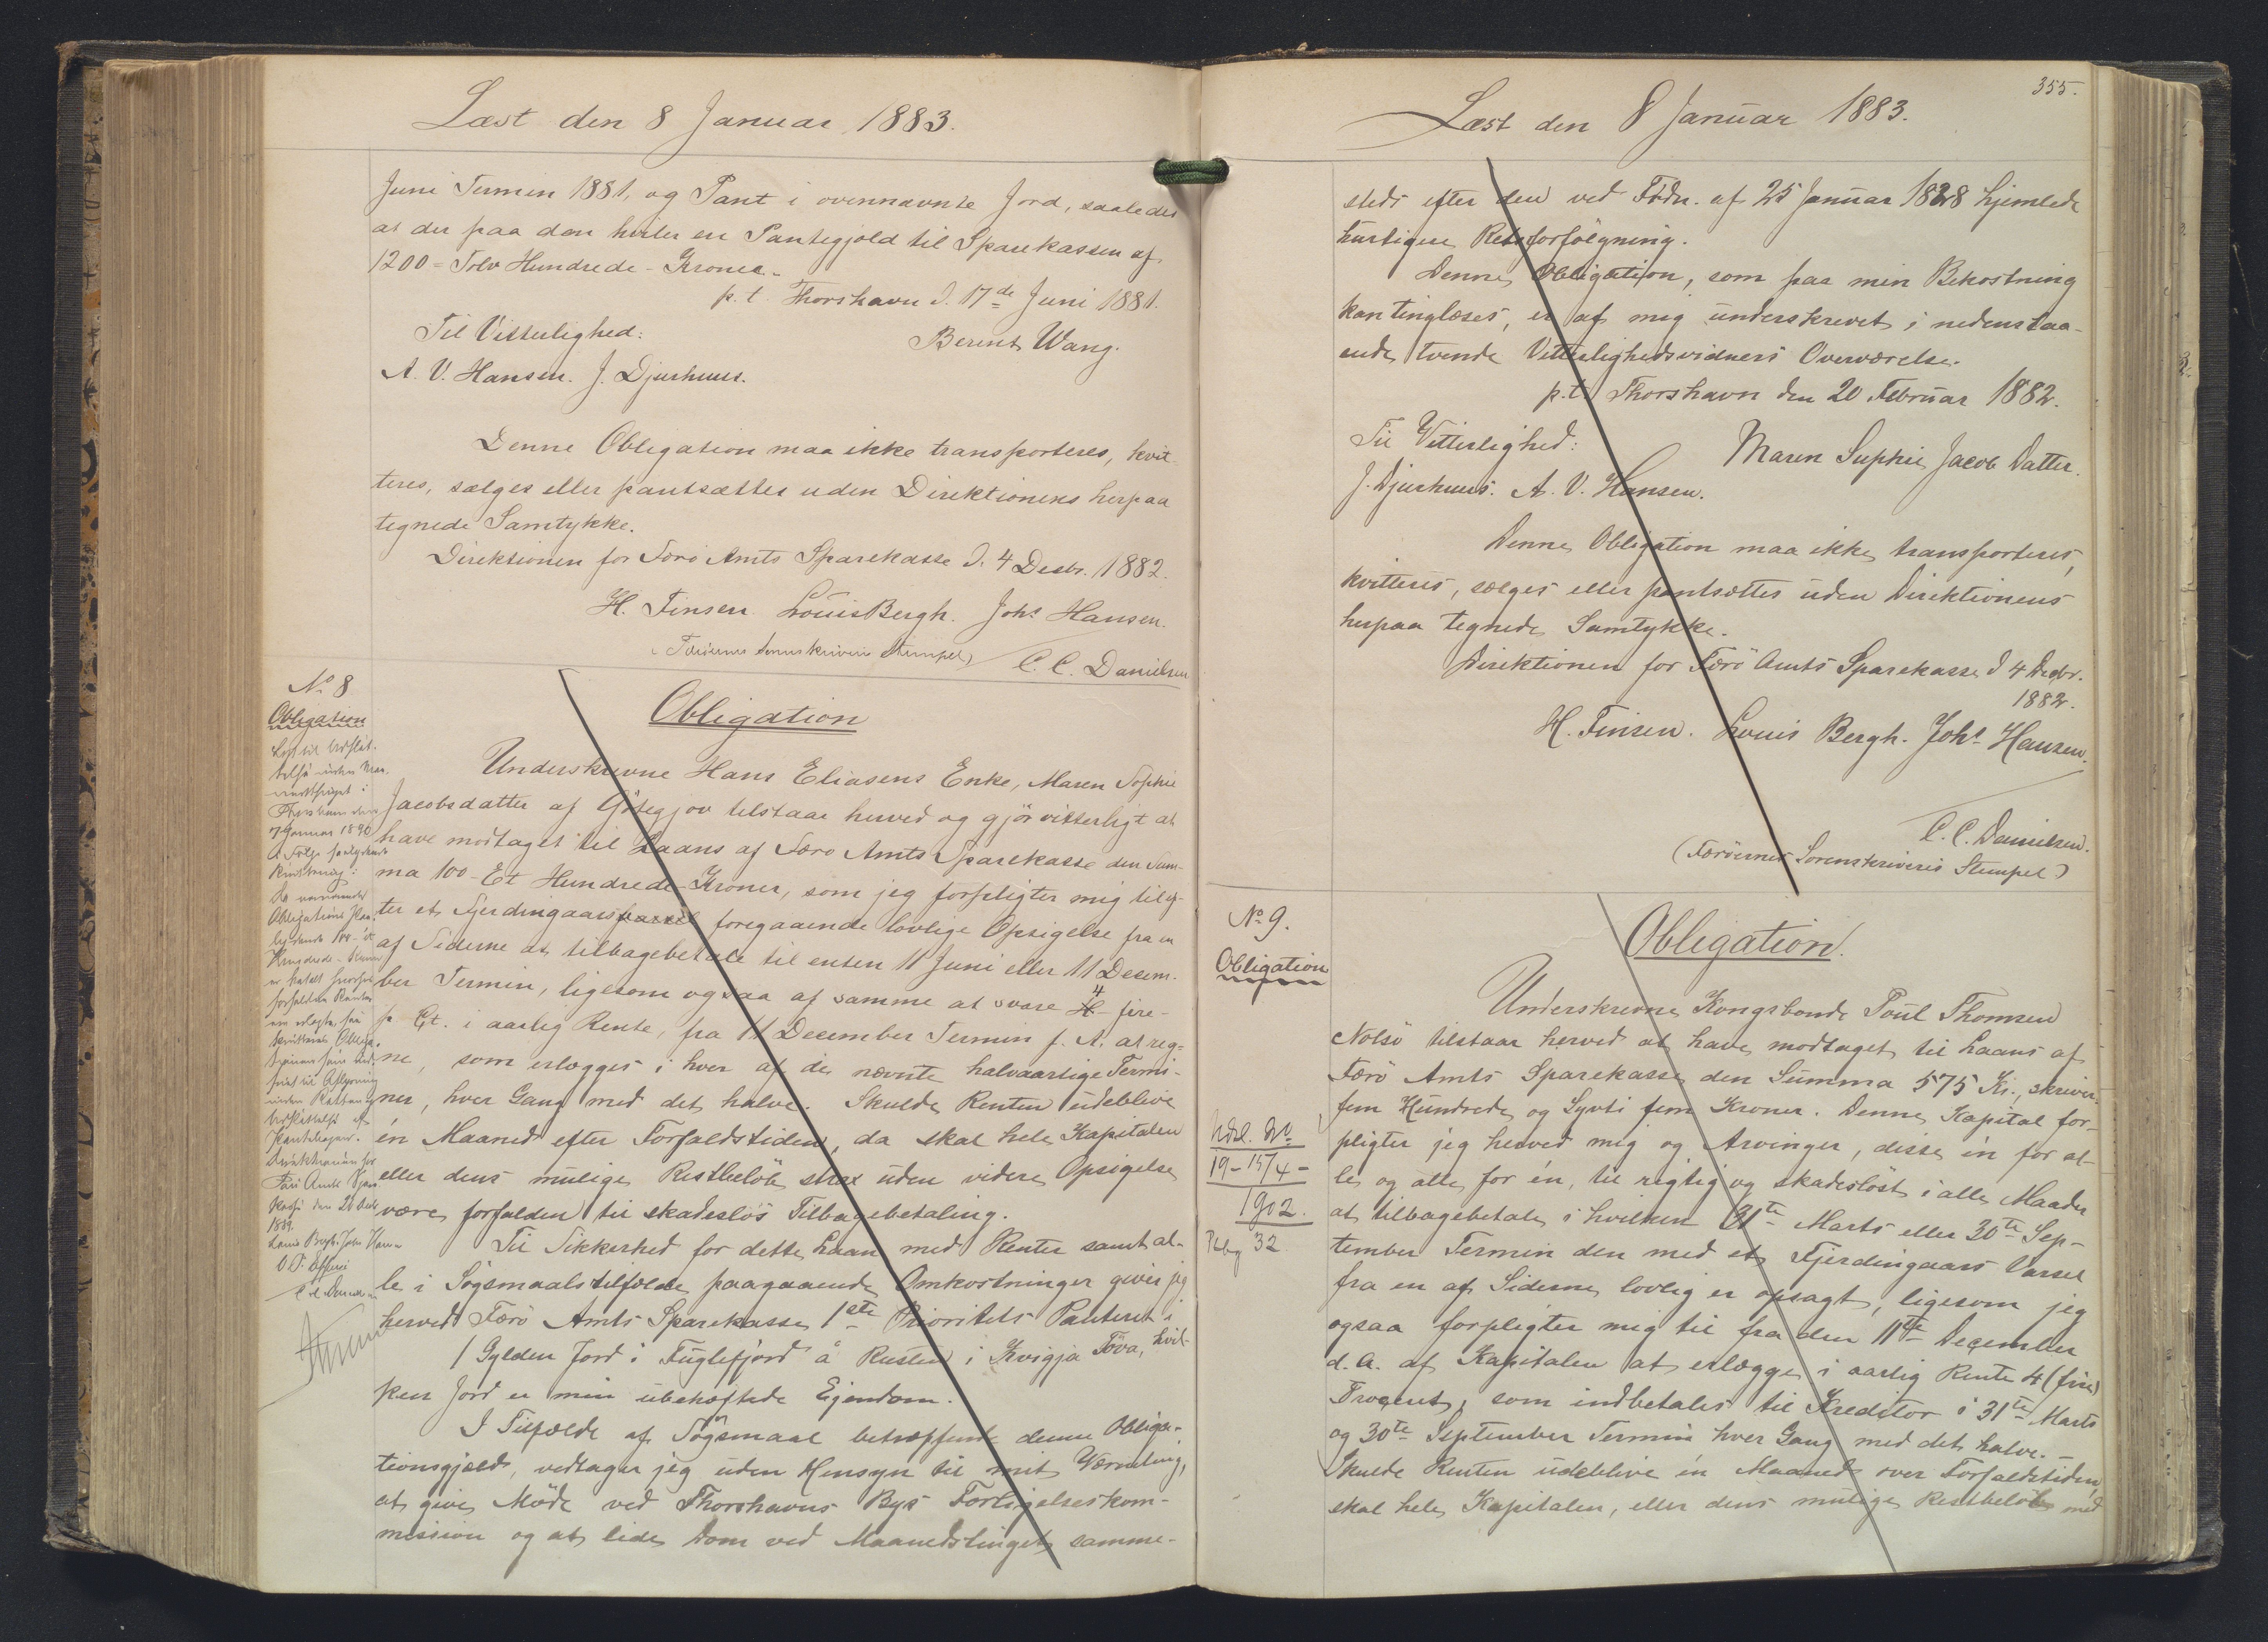 Læst den 8 Januar 1883.
Juni Termin 1881, og Pant i ovennævnte Jord, saaledes
at der paa den hviler en Pantegjæld til Sparekassen af
1200 = Tolv Hundrede - Kroner.
p. t. Thorshavn d. 17de Juni 1881.
Til Vitterlighed:
Berent Wang.
A. V. Hansen. J. Djurhuus.
Denne Obligation maa ikke transporteres, kvit-
teres, sælges eller pantsættes uden Direktionens herpaa
tegnede Samtykke.
Direktionen for Færø Amts Sparekasse d. 4 Decbr. 1882.
H. Finsen Louis Bergh. Johs Hansen.
(Færøernes Sorenskriveris Stempel)
C. C. Danielsen
No 8
Obligation
Læst til Udslet-
telse inden
i
Thorshavn den
7 Januar 1890
i Følge saalydende
Kvittering:
Obligations
lydende 100 - Et
Hundrede - Kroner
er betalt
forfaldne Renter
Direktionen for
Færø Amts Spare
kasse den 20
1889.
Louis Bergh. Johs Hansen
C. C. Danielsen
Obligation
Underskrevne Hans Eliasens Enke, Maren Sophie
Jacobsdatter af Gøtegjov tilstaar herved og gjør vitterligt at
have modtaget til Laans af Færø Amts Sparekasse den Sum-
ma 100 - Et Hundrede - Kroner, som jeg forpligter mig til ef-
ter et Fjerdingaars foregaaende lovlige Opsigelse fra en
af Siderne at tilbagebetale til enten 11 Juni eller 11 Decem-
ber Termin, ligesom ogsaa af samme at svare 4 - fire -
p Ct. i aarlig Rente, fra 11 December Termin f. A. at reg-
ne, som erlægges i hver af de nævnte halvaarlige Termi-
ner, hver Gang med det halve. Skulde Renten udeblive
én Maaned efter Forfaldstiden, da skal hele Kapitalen
eller dens mulige Restbeløb strax uden videre Opsigelse
være forfalden til skadesløs Tilbagebetaling.
Til Sikkerhed for dette Laan med Renter samt al-
le i Søgsmaalstilfælde paagaaende Omkostninger giver jeg
herved Færø Amts Sparekasse 1ste Prioritets Panteret i
1 Gylden Jord i Fuglefjord å Rusten i Kvigja Tøva, hvil-
ken Jord er min ubehæftede Ejendom.
I Tilfælde af Søgsmaal betræffende denne Obliga-
tionsgjæld, vedtager jeg uden Hensyn til mit Værneting,
at give Møde ved Thorshavns Bys Forligelseskom-
mission og at lide Dom ved Maanedstinget samme-
355.
Læst den 8 Januar 1883.
steds efter den ved Frdn. af 25 Januar 1828 hjemlede
hurtigere Retsforfølgning.
Denne Obligation, som paa min Bekostning
kan tinglæses, er af mig underskrevet i nedenstaa-
ende tvende Vitterlighedsvidners Overværelse.
p. t. Thorshavn den 20 Februar 1882.
Til Vitterlighed:
Maren Suphie Jacob Datter.
J. Djurhuus. A. V. Hansen.
Denne Obligation maa ikke transporteres,
kvitteres, sælges eller pantsættes uden Direktionens
herpaa tegnede Samtykke.
Direktionen for Færø Amts Sparekasse d 4 Decbr.
1882.
H. Finsen. Louis Bergh. Johs Hansen.
C. C. Danielsen.
(Færøernes Sorenskriveris Stempel)
No 9.
Obligation
Udsl. No
19 - 15/4 -
1902.
32
Obligation.
Underskrevne Kongsbonde Poul Thomsen
Nolsø tilstaar herved at have modtaget til Laans af
Færø Amts Sparekasse den Summa 575 Kr., skriver
fem Hundrede og Syvti fem Kroner. Denne Kapital for-
pligter jeg herved mig og Arvinger, disse én for al-
le og alle for én, til rigtig og skadesløst i alle Maader
at tilbagebetale i hvilken 31te Marts eller 30te Sep-
tember Termin den med et Fjerdingaars Varsel
fra en af Siderne lovlig er opsagt, ligesom jeg
ogsaa forpligter mig til fra den 11te December
d. A. af Kapitalen at erlægge i aarlig Rente 4 (fire)
Procent, som indbetales til Kreditor i 31te Marts
og 30te September Termin hver Gang med det halve.
Skulde Renten udeblive én Maaned over Forfaldstiden,
skal hele Kapitalen, eller dens mulige Restbeløb med